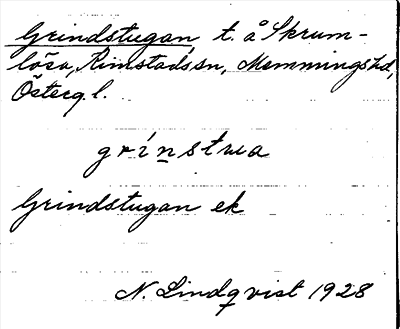 Grindstugan, t. å Skrum-
lösa, Rimstads sn, Memmings hd,
Östergl.
grínstua
Grindstugan ek
N. Lindqvist 1928